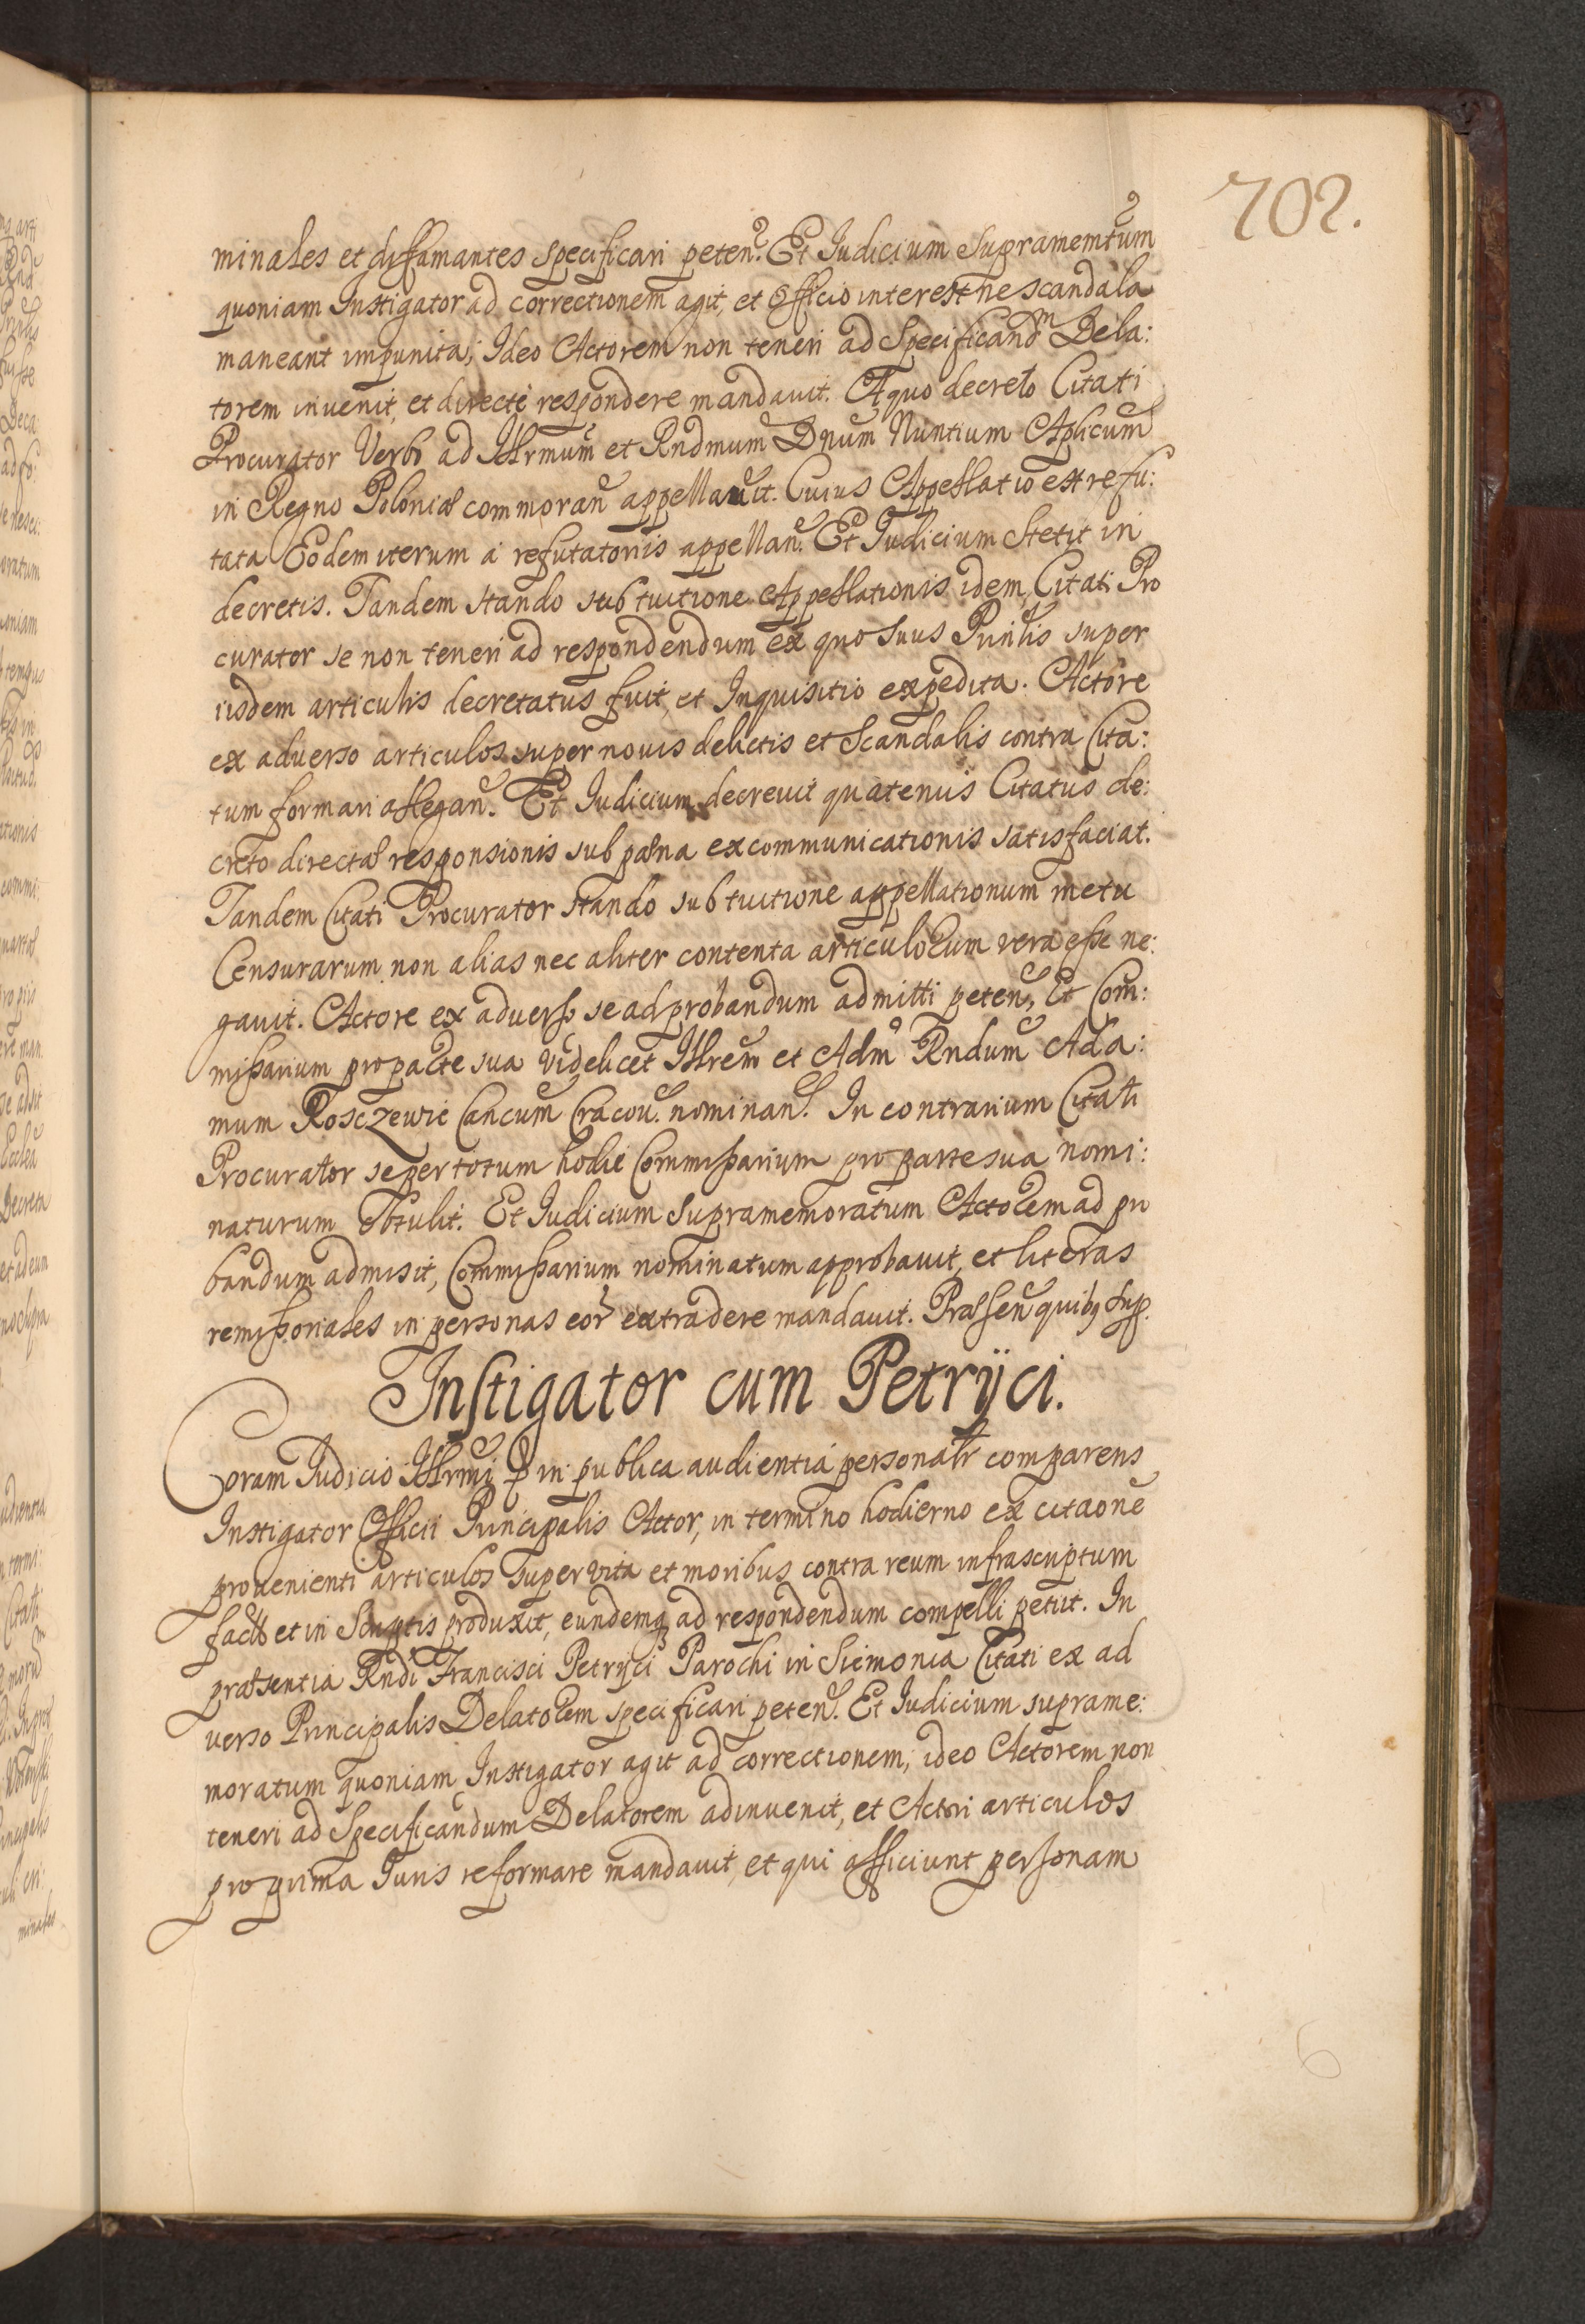 702.
minales et diffamantes specificari peten. Et Iudicium Supramemtum
quoniam Instigator ad correctionem agit, et Officio interest ne scandala
maneant impunita; Ideo Actorem non teneri ad Specificandm Dela:
torem invenit, et directe respondere mandauit. A quo decreto Citati
Procurator Verbo ad Illrmum et Rndmum Dnum Nuntium Aplicum
in Regno Poloniæ commoran appellauit. Cuius Appellatio est refu:
tata Eodem iterum a refutatoriis appellan. Et Iudicium Stetit in
decretis. Tandem stando sub tuitione Appellationis idem Citati Pro
curator se non teneri ad respondendum ex quo suus Prinlis super
iisdem articulis decretatus fuit, et Inquisitio expedita. Actore
ex aduerso articulos super nouis delictis et Scandalis contra Cita:
tum formari allegan. Et Iudicium decreuit quatenus Citatus de:
creto directæ responsionis sub pæna excommunicationis satisfaciat.
Tandem Citati Procurator stando sub tuitione appellationum metu
Censurarum non alias nec aliter contenta articulorum vera esse ne:
gauit. Actore ex aduerso se ad probandum admitti peten, Et Com:
missarium pro parte sua videlicet Illrem et Adm Rndum Ada:
mum Rosczewic Cancum Cracou. nominan. In contrarium Citati
Procurator se per totum hodie Commissarium pro parte sua nomi:
naturum obtulit. Et Iudicium Supramemoratum Actorem ad pro
bandum admisit, Commissarium nominatum approbauit, et literas
remissoriales in personas eor extradere mandauit. Præsen quibq sup.
Instigator cum Petrÿci.
Coram Iudicio Illrmi P in publica audientia personalr comparens
Instigator Officii Principalis Actor, in termino hodierno ex citaone
prouenienti articulos super vita et moribus contra reum infrascriptum
facit et in Scriptis produxit, eundemq ad respondendum compelli petiit. In
præsentia Rndi Francisci Petrÿci Parochi in Siemonia Citati ex ad
verso Principalis Delatorem specificari peten. Et Iudicium suprame:
moratum quoniam Instigator agit ad correctionem, ideo Actorem non
teneri ad Specificandum Delatorem adinuenit, et Actori articulos
pro prima Iuris reformare mandauit, et qui afficiunt personam
6